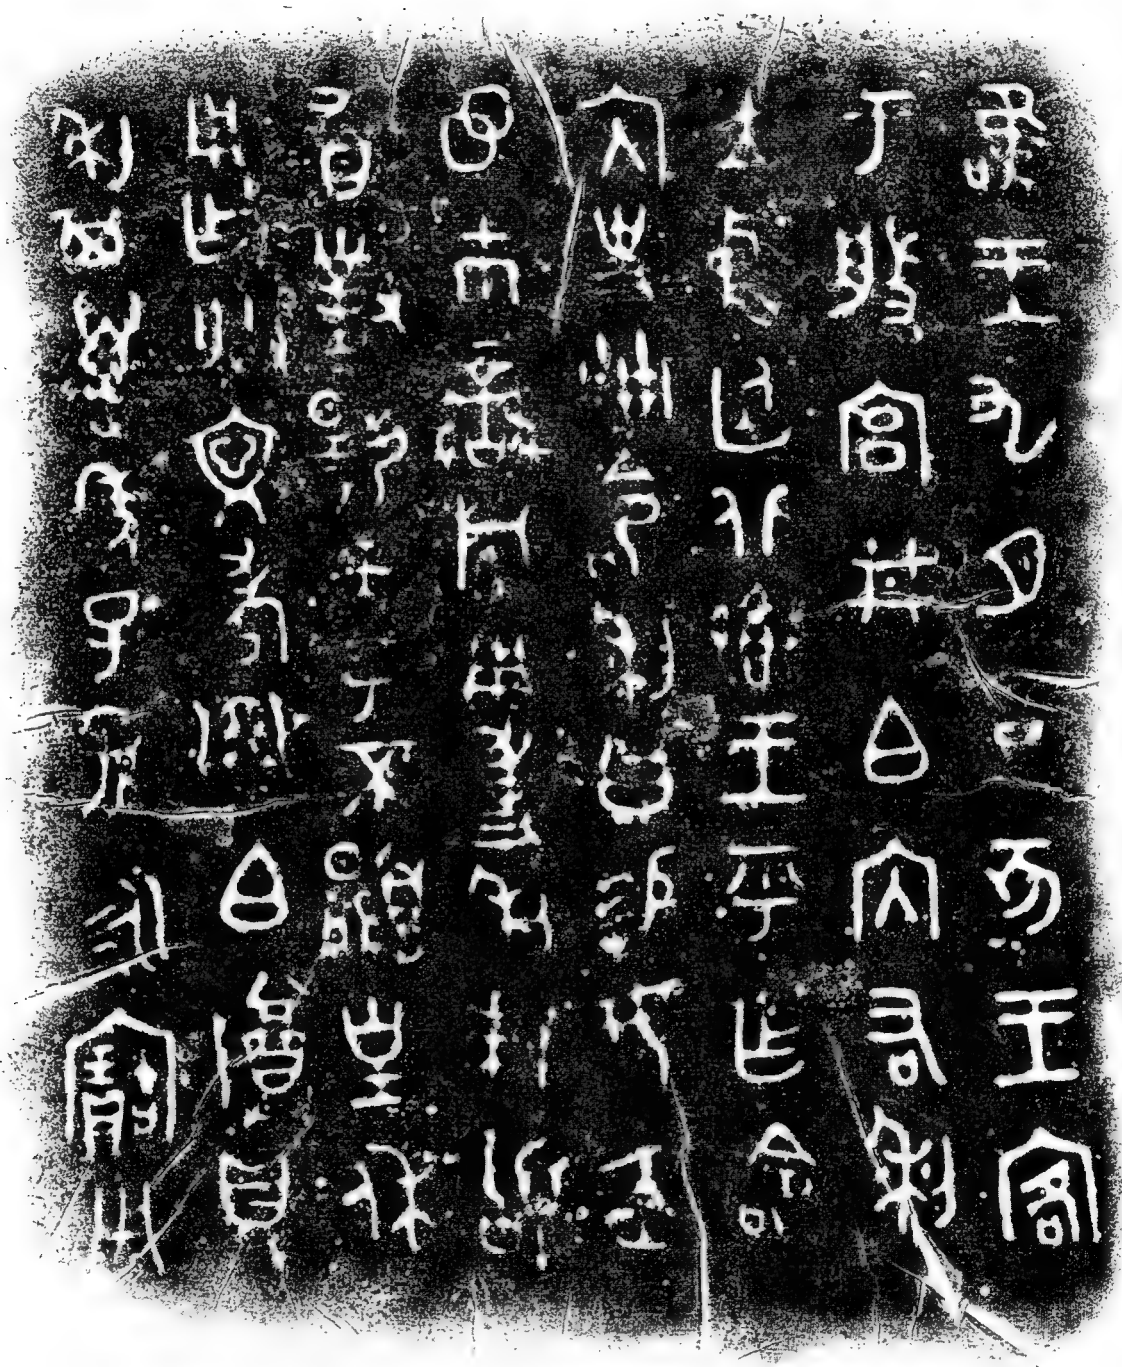 唯王九月丁亥王客
于般宮井白內右利
立中廷北鄉王乎乍命
內史冊令利曰易女赤
市䜌旂用事利拜𩒨
首對揚天子不顯皇休
用乍朕文考白尊鼎
利其萬年子孫永寶用